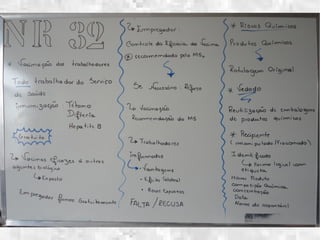 NR 32
→ Vacinação dos trabalhadores
Todo trabalhador do Serviço
de saúde
imunização Tétano
Difteria
Hepatite B
Gratuito
→ Vacinas eficazes a outros
agentes biológico
↳ Exposto
Empregador fornece Gratuitamente
→ Empregador
Controle da Eficácia da Vacina
recomendado pelo MS,
Se Necessário Reforço
→ Vacinação
Recomendação do MS
→ Trabalhadores
Informados
→ Vantagens
- Efeito Colateral
- Riscos Expostos
FALTA / RECUSA
* Riscos Químicos
Produtos Químicos
Rotulagem Original
* Vedado
Reutilização de embalagens
de produtos químicos
* Recipiente
(manipulado/fracionado)
Identificado
↳ forma legível com
etiqueta
Nome Produto
composição Química
concentração
Data
Nome do responsável